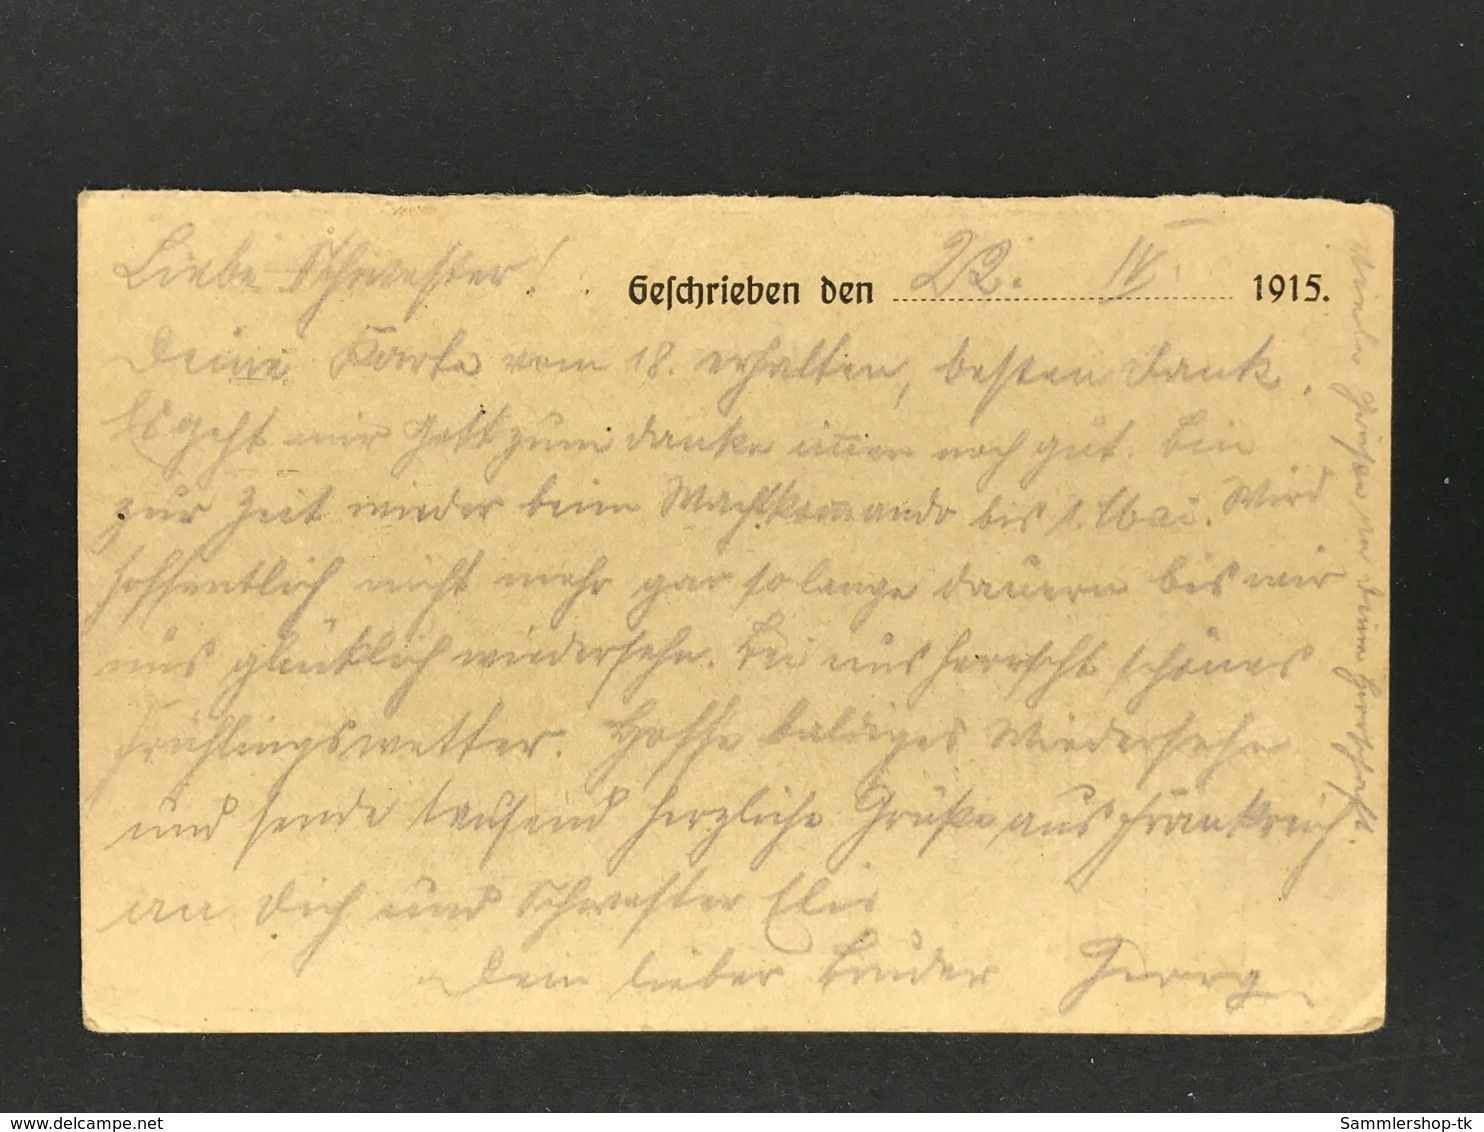 Liebe Schwester!
Geschrieben den 22. IV. 1915.
Deine Karte vom 18. erhalten, besten Dank.
Es geht mir Gott zum danke im̅er noch gut. Bin
zur Zeit wieder beim Wachtkom̅ando bis 1. Mai. Wird
hoffentlich nicht mehr gar so lange dauern bis wir
uns glücklich wiedersehn. Bei uns herrscht schönes
Frühlingswetter. Hoffe baldiges Wiedersehn
und sende tausend herzliche Grüße aus Frankreich.
an Dich und Schwester Elis
Dein lieber Bruder Georg
Viele Grüße an Deine Herrschaft.
delcampe.net
Sammlershop-tk